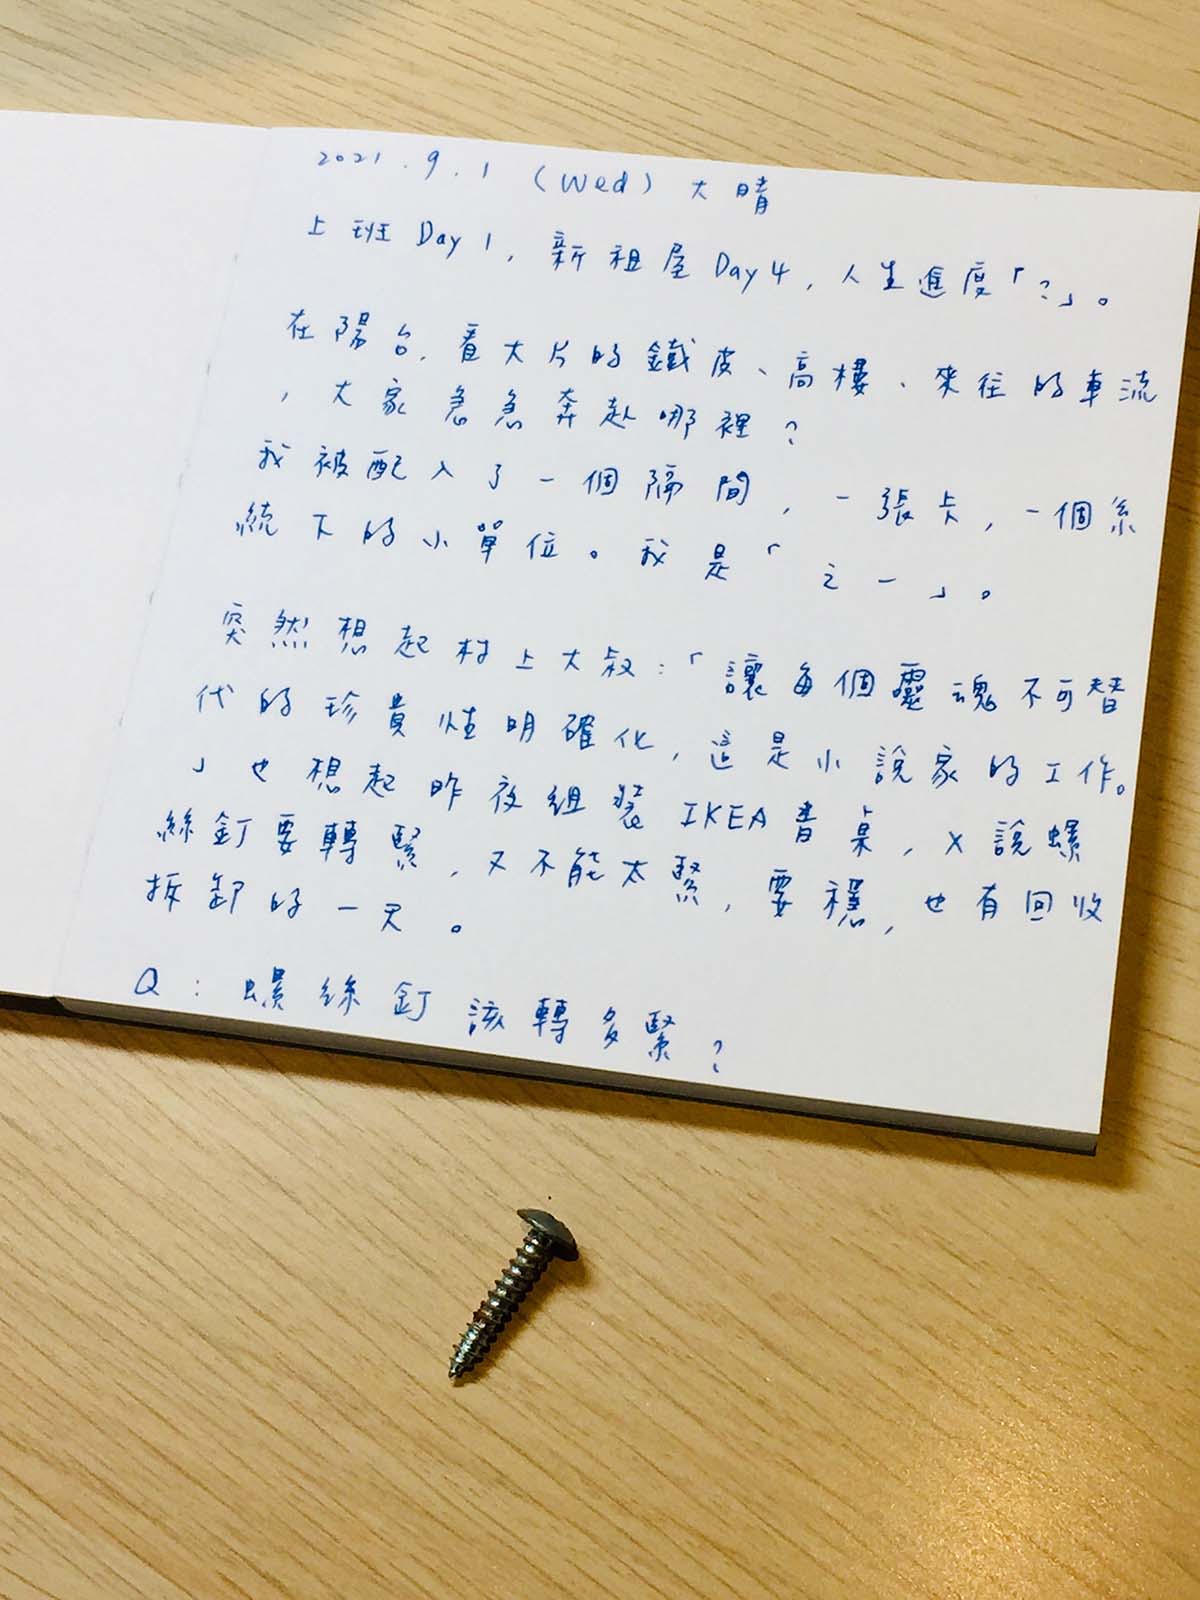 2021.9.1 (Wed) 大晴
上班Day 1, 新租屋Day 4, 人生進度「?」。
在陽台, 看大片的鐵皮、高樓、來往的車流
, 大家急急奔赴哪裡?
我被配入了一個隔間, 一張卡, 一個系
統下的小單位。我是「之一」。
突然想起村上大叔:「讓每個靈魂不可替
代的珍貴性明確化, 這是小說家的工作。
」也想起昨夜組裝IKEA書桌, X說螺
絲釘要轉緊, 又不能太緊, 要穩, 也有回收
拆卸的一天。
Q: 螺絲釘該轉多緊?